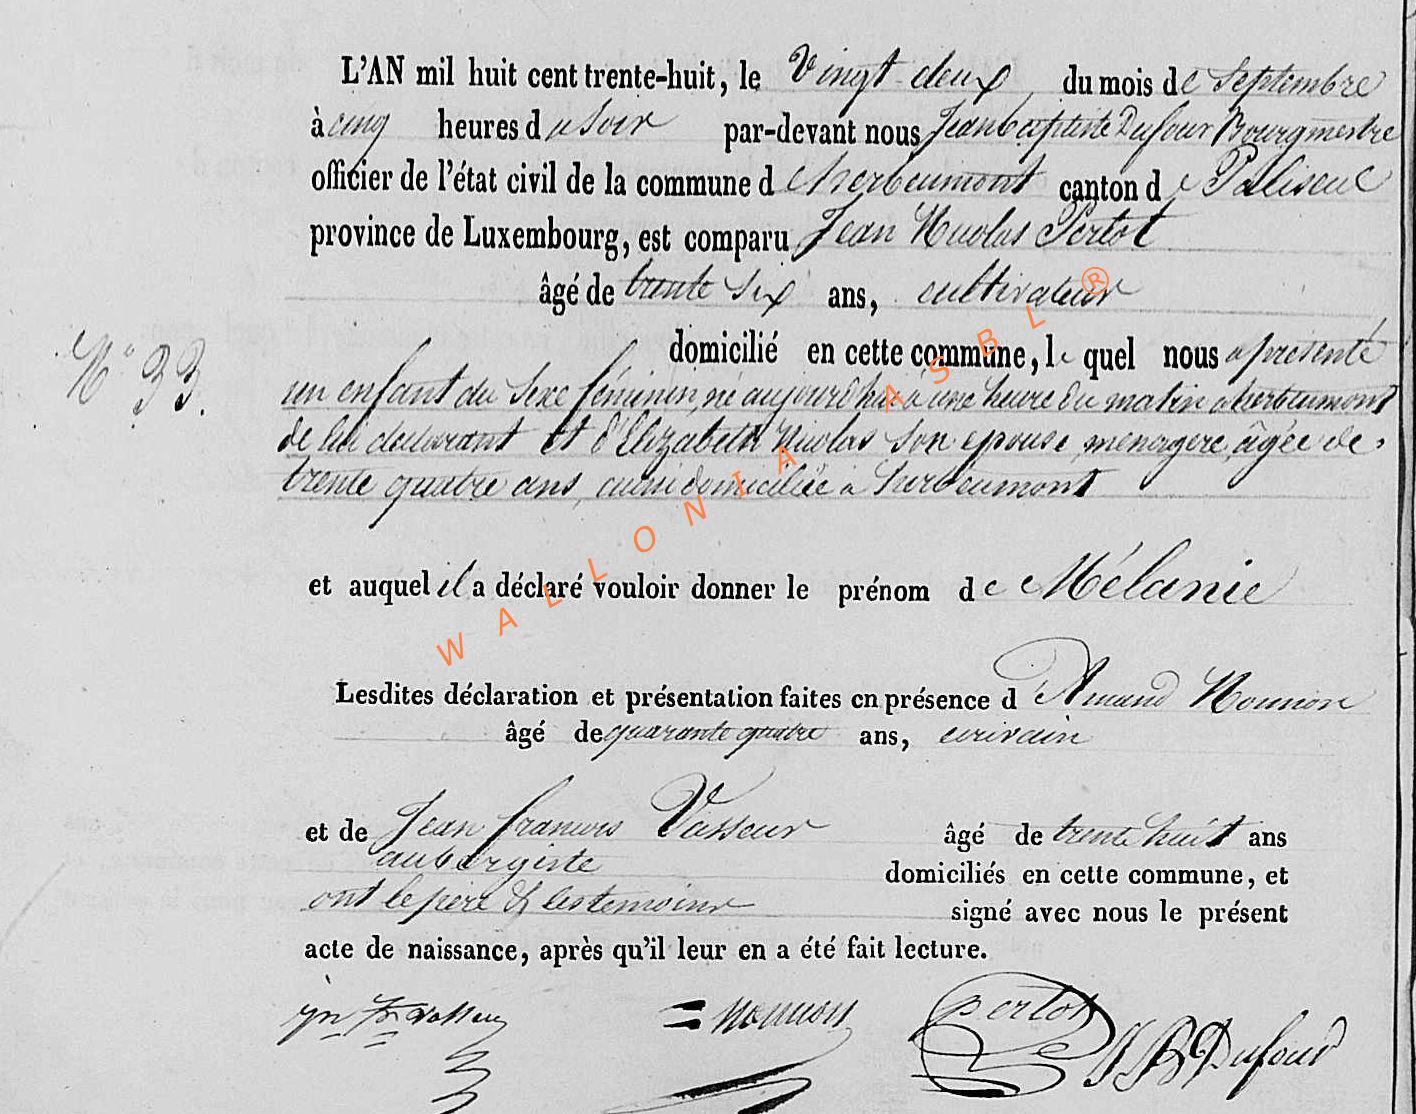 L'AN mil huit cent trente-huit, le Vingt deux du mois de Septembre
à cinq heures du Soir par-devant nous Jean baptiste Dufour Bourgmestre
officier de l'état civil de la commune d'herbeumont canton de Paliseul
province de Luxembourg, est comparu Jean Nicolas Pertot
âgé de trente Six ans, cultivateur
domicilié en cette commune, le quel nous a présenté
N° 33.
un enfant du Sexe féminin, né aujourd'hui à une heure du matin a herbeumont
de lui declarant et d'Elizabeth Nicolas Son epouse, menagere, âgée de
trente quatre ans, aussi domiciliée a herbeumont
et auquel il a déclaré vouloir donner le prénom de Mélanie
Lesdites déclaration et présentation faites en présence d'Amand Nonnon
âgé de quarante quatre ans, ecrivain
et de Jean francois Vasseur âgé de trente huit ans
aubergiste domiciliés en cette commune, et
ont le père & les temoins signé avec nous le présent
acte de naissance, après qu'il leur en a été fait lecture.
jn fr Vasseur Nonnon pertot J B Dufour
WALLONIA ASBL ®